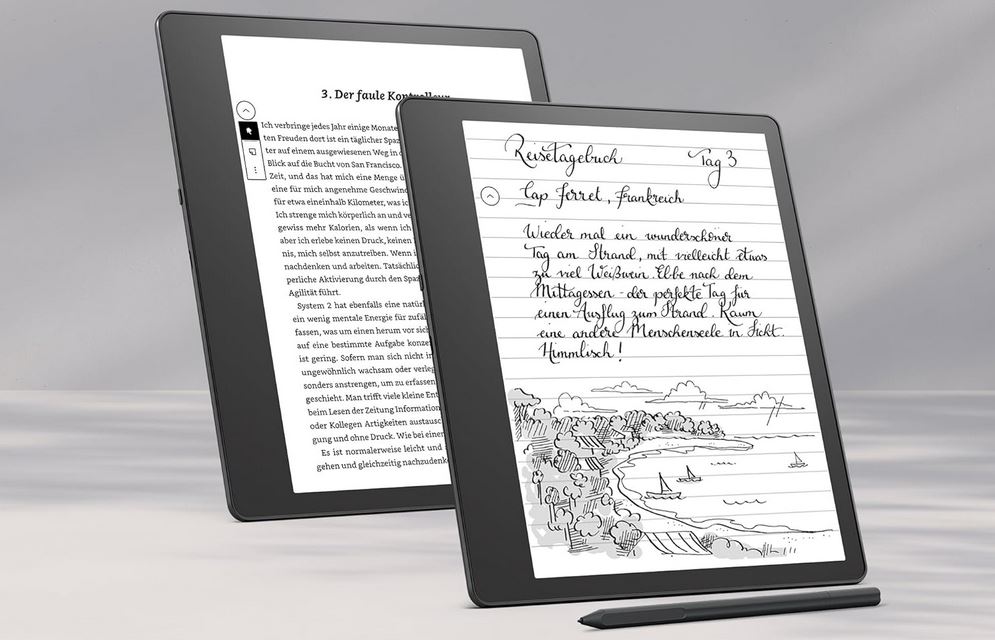 3. Der faule Kontrolleur
Ich verbringe jedes Jahr einige Monate
ten Freuden dort ist ein täglicher Spaz
ter auf einem ausgewiesenen Weg in d
Blick auf die Bucht von San Francisco.
Zeit, und das hat mich eine Menge ü
eine für mich angenehme Geschwind
für etwa eineinhalb Kilometer, was ic
Ich strenge mich körperlich an und ve
gewiss mehr Kalorien, als wenn ich
aber ich erlebe keinen Druck, keinen
nis, mich selbst anzutreiben. Wenn i
nachdenken und arbeiten. Tatsächlic
perliche Aktivierung durch den Spaz
Agilität führt.
System 2 hat ebenfalls eine natür
ein wenig mentale Energie für zufäl
fassen, was um einen herum vor sich
auf eine bestimmte Aufgabe konze
ist gering. Sofern man sich nicht in
ungewöhnlich wachsam oder verleg
sonders anstrengen, um zu erfassen
geschieht. Man trifft viele kleine Ent
beim Lesen der Zeitung Information
oder Kollegen Artigkeiten austausc
gung und ohne Druck. Wie bei einer
Es ist normalerweise leicht und
gehen und gleichzeitig nachzudenke
Reisetagebuch Tag 3
Cap Ferret, Frankreich
Wieder mal ein wunderschöner
Tag am Strand, mit vielleicht etwas
zu viel Weißwein. Ebbe nach dem
Mittagessen - der perfekte Tag für
einen Ausflug zum Strand. Kaum
eine andere Menschenseele in Sicht.
Himmlisch!